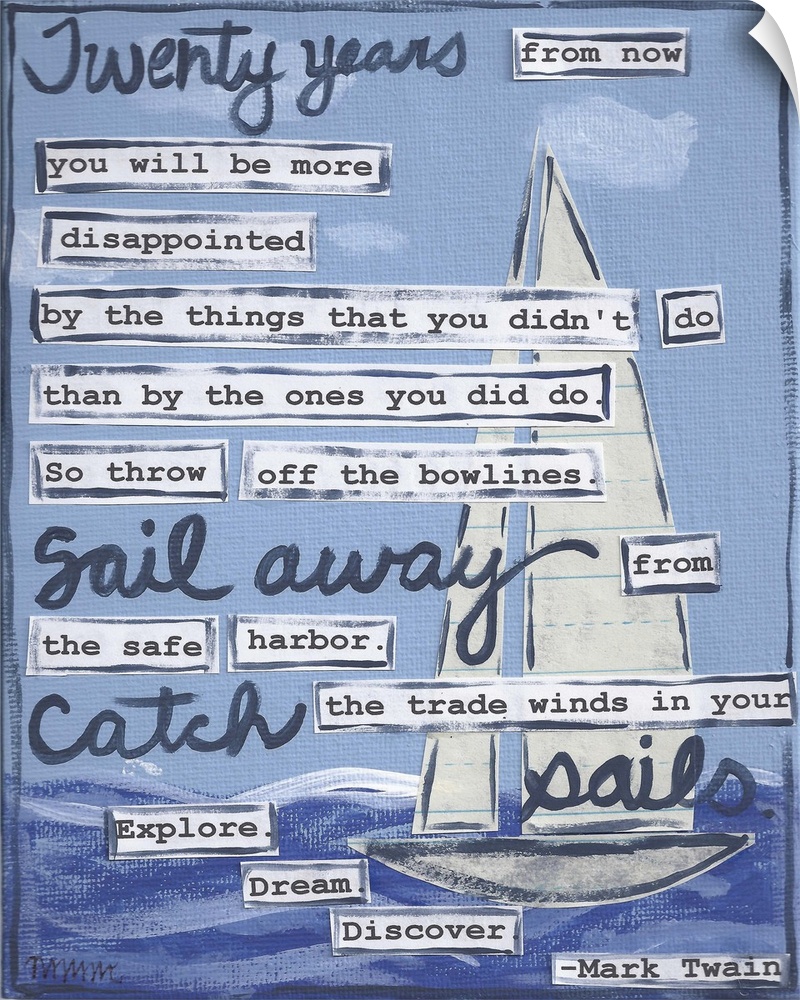 Twenty years from now
you will be more
disappointed
by the things that you didn't do
than by the ones you did do.
So throw off the bowlines.
Sail away from
the safe harbor.
Catch the trade winds in your
sails.
Explore.
Dream.
Discover.
-Mark Twain